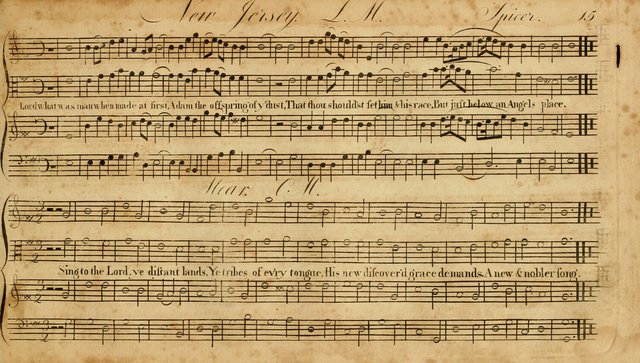 New Jersey. L. M. Spicer. 15
Lord what was man when made at first, Adam the offspring of ye dust, That thou shouldst set him & his race, But just below an Angels place.
Mear. C. M.
Sing to the Lord, ye distant lands, Ye tribes of ev'ry tongue, His new discover'd grace demands, A new & nobler song.